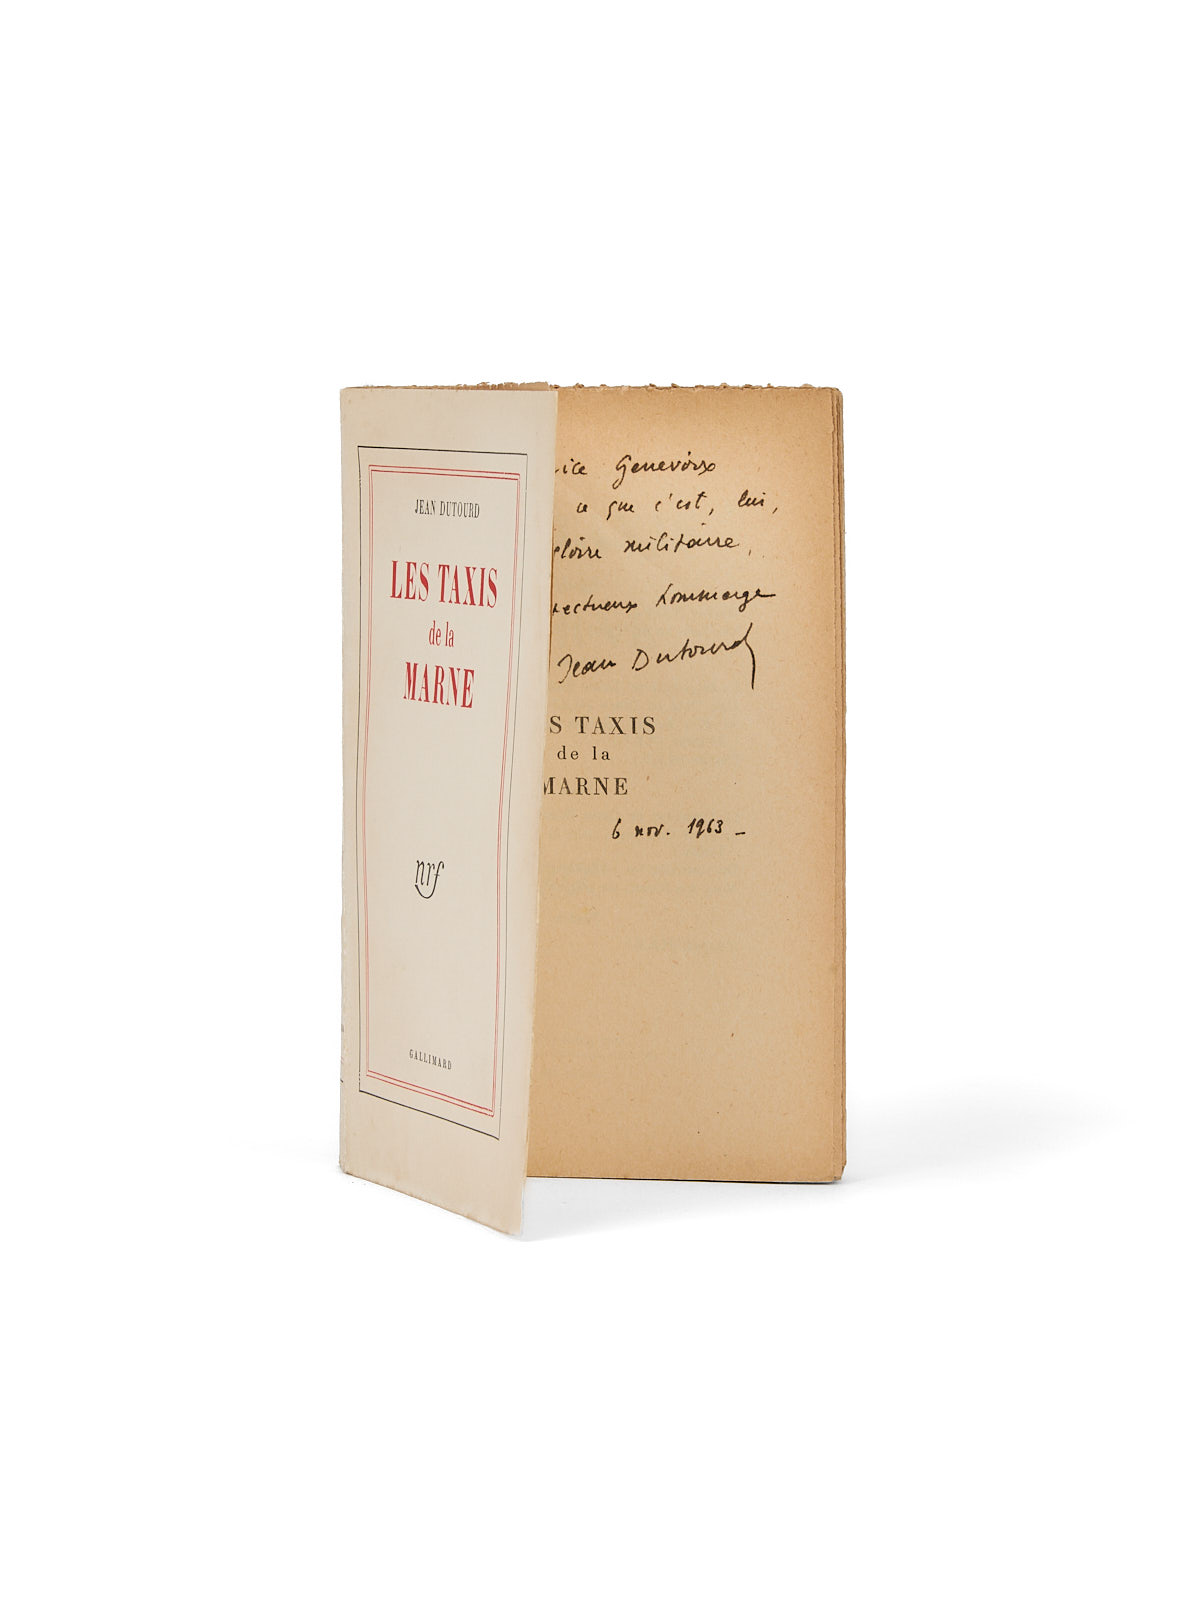 JEAN DUTOURD
LES TAXIS
de la
MARNE
nrf
GALLIMARD
ice Genevoix
ce que c'est, lui,
gloire militaire,
ectueux hommage
Jean Dutourd
S TAXIS
de la
MARNE
6 nov. 1963 –